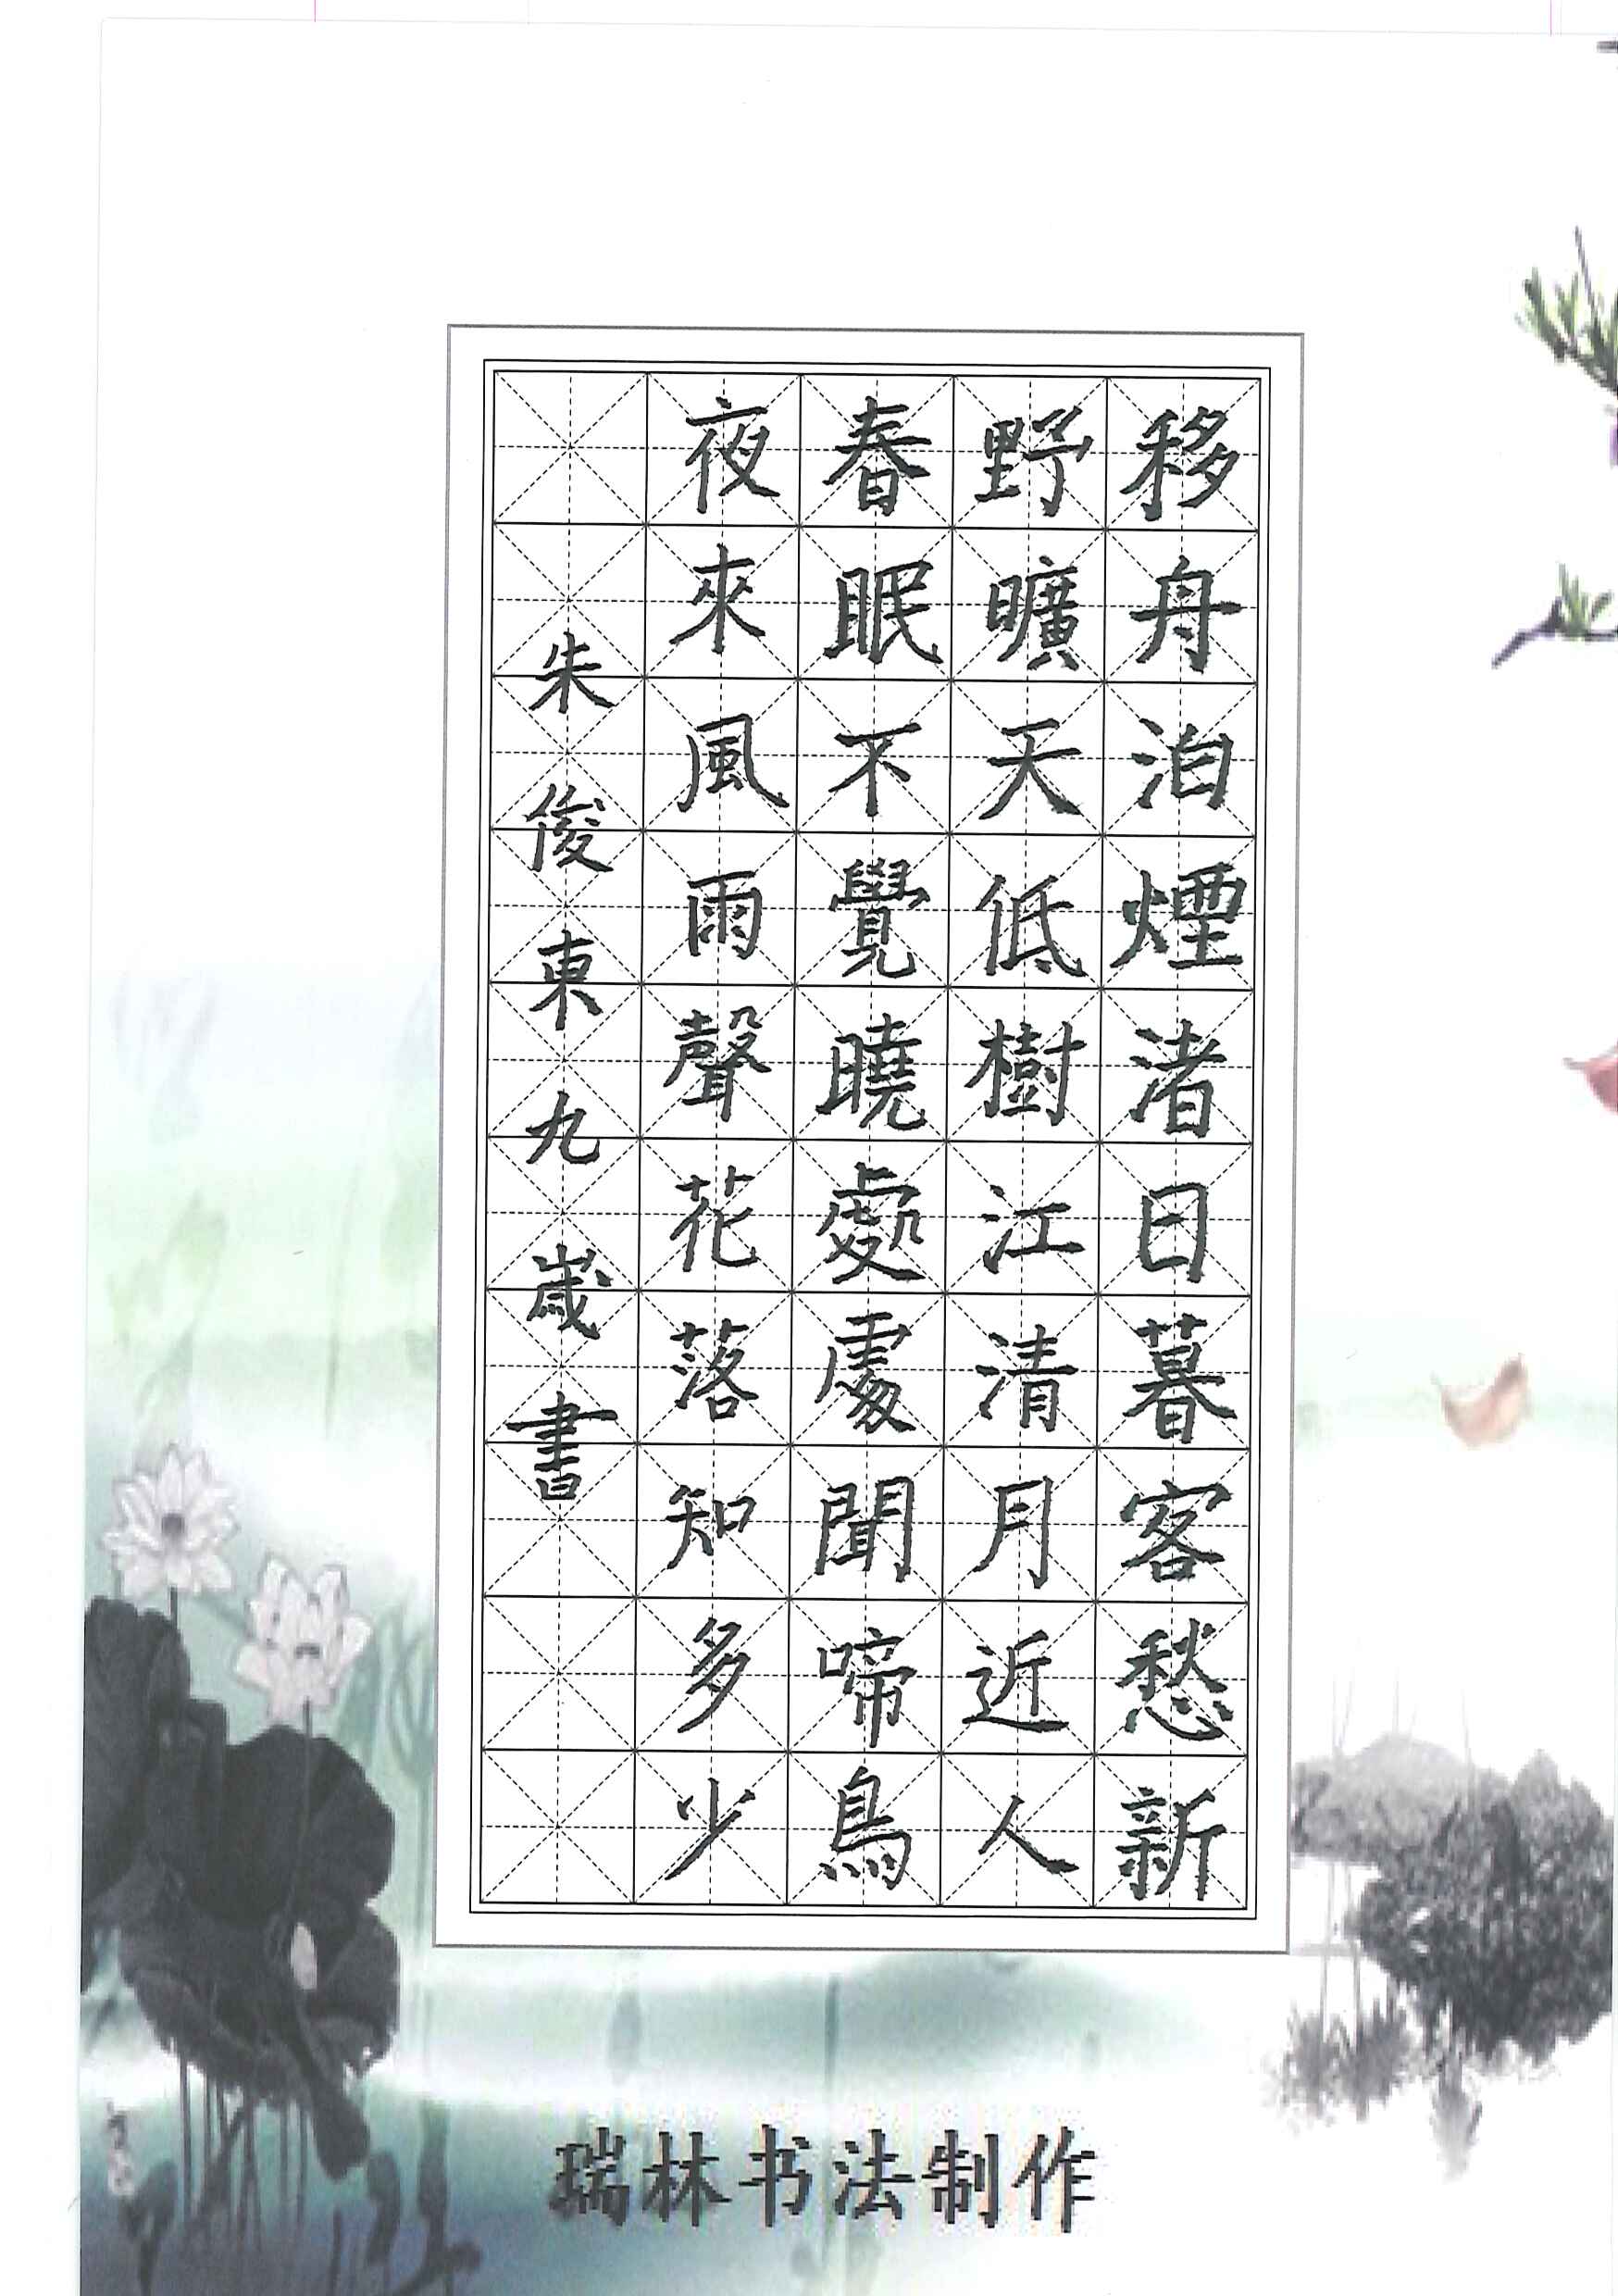 移舟泊煙渚日暮客愁新
野曠天低樹江清月近人
春眠不覺曉處處聞啼鳥
夜來風雨聲花落知多少
朱俊東九歲書
瑞林书法制作